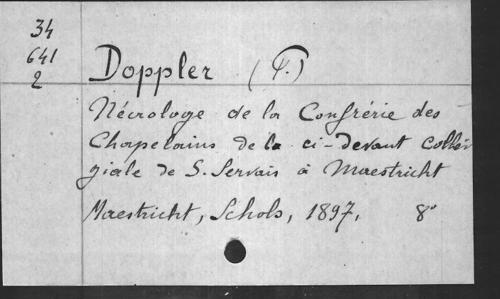 34
641
2
Doppler (P.)
Nécrologe de la Confrérie des
Chapelains de la ci-devant Collé-
giale de S. Servais à Maestricht
Maestricht, Schols, 1897. 8°